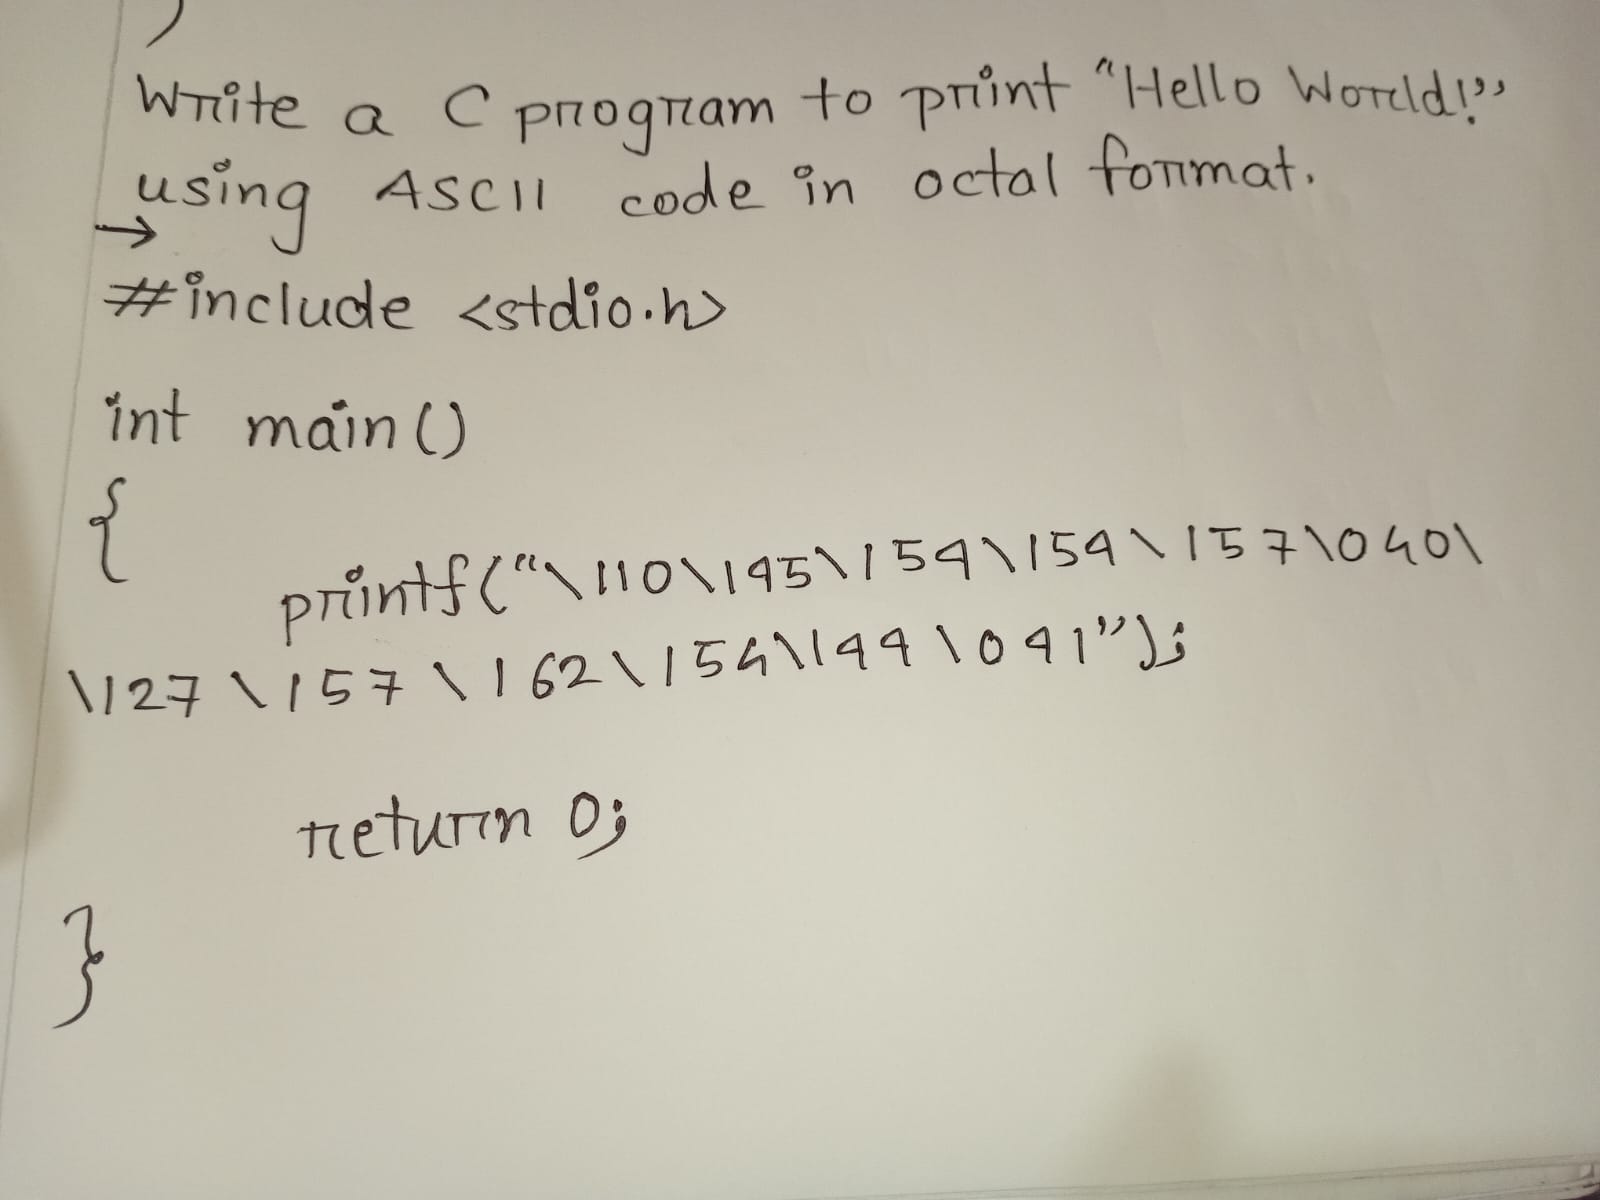 Write a C program to print "Hello World!"
using ASCII code in octal format.
→
#include <stdio.h>
int main()
{
printf("\110\145\154\154\157\040\
\127\157\162\154\144\041");
return 0;
}